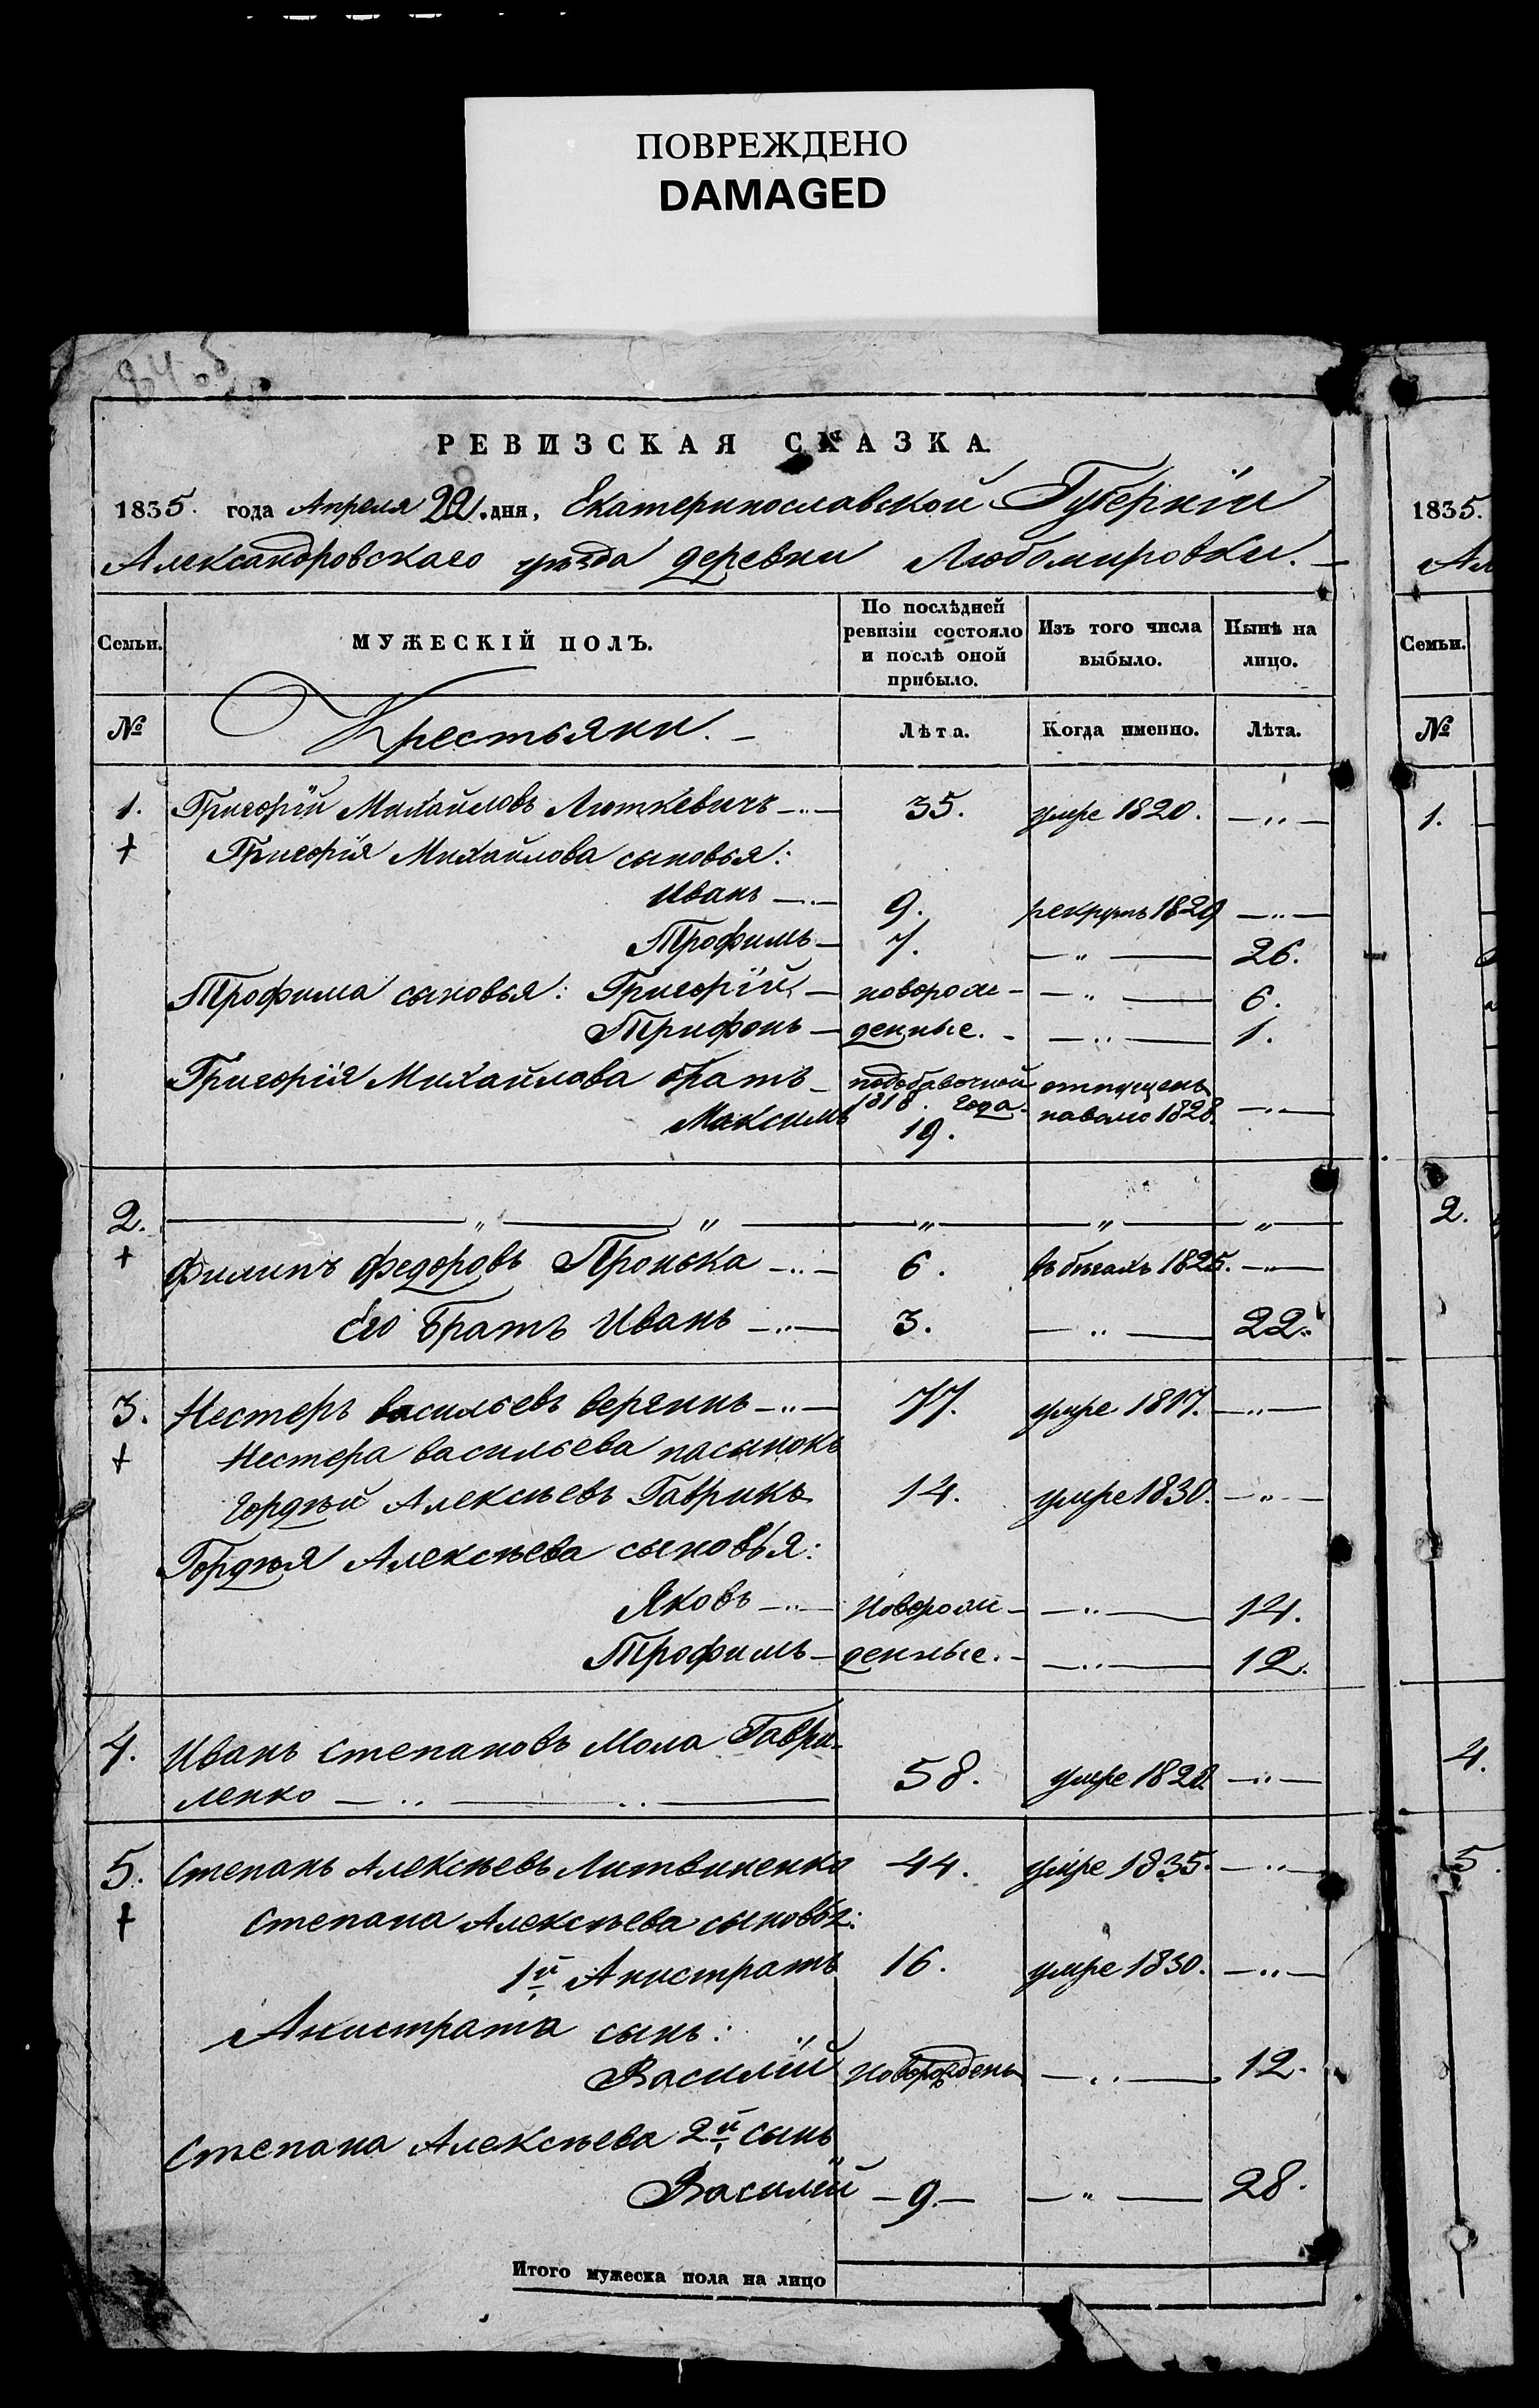 ПОВРЕЖДЕНО
DAMAGED
РЕВИЗСКАЯ СКАЗКА.
1835. года Апреля 22. дня, Екатеринославской Губерніи
Александровскаго уѣзда деревни Любомировки.
Семьи. МУЖЕСКІЙ ПОЛЪ. По послѣдней ревизіи состояло и послѣ оной прибыло. Изъ того числа выбыло. Нынѣ на лицо.
№ Крестьяни. Лѣта. Когда именно. Лѣта.
1. Григорій Михайловъ Люткевичъ 35. умре 1820.
Григорія Михайлова сыновья:
Иванъ 9. рекрутъ 1829
Трофимъ 7. 26.
Трофима сыновья: Григорій новорож- 6.
Трифонъ денные. 1.
Григорія Михайлова братъ подобавочной отпущенъ
Максимъ 1818. года. наволю 1828.
19.
2.
Филипъ Федоровъ Пронька 6. въ бѣгахъ 1825.
Его Братъ Иванъ 3. 22.
3. Нестеръ васильевъ Вергинъ 77. умре 1817.
Нестера васильева пасынокъ
Гордѣй Алексѣевъ Гаврикъ 14. умре 1830.
Гордѣя Алексѣева сыновья:
Яковъ Новорож- 14.
Трофимъ денные. 12.
4. Иванъ Степановъ Мола Гаври-
ленко 58. умре 1828.
5. Степанъ Алексѣевъ Литвиненко 44. умре 1835.
Степана Алексѣева сыновья:
1й Анистратъ 16. умре 1830.
Анистрата сынъ:
Василій Новорожденъ 12.
Степана Алексѣева 2й сынъ
Василій 9. 28.
Итого мужеска пола на лицо
1835.
Ал
Семьи.
№
1.
2.
4.
5.